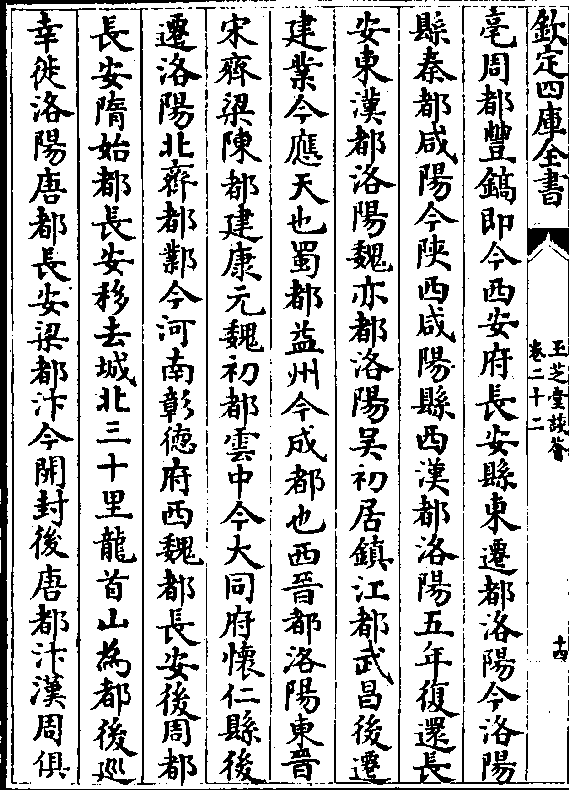 欽定四庫全書
玉芝堂談薈
卷二十二
十四
亳周都豐鎬即今西安府長安縣東遷都洛陽今洛陽
縣秦都咸陽今陜西咸陽縣西漢都洛陽五年復還長
安東漢都洛陽魏亦都洛陽吳初居鎮江都武昌後遷
建業今應天也蜀都益州今成都也西晉都洛陽東晉
宋齊梁陳都建康元魏初都雲中今大同府懷仁縣後
遷洛陽北齊都鄴今河南彰德府西魏都長安後周都
長安隋始都長安移去城北三十里龍首山為都後廵
幸徙洛陽唐都長安梁都汴今開封後唐都汴漢周俱